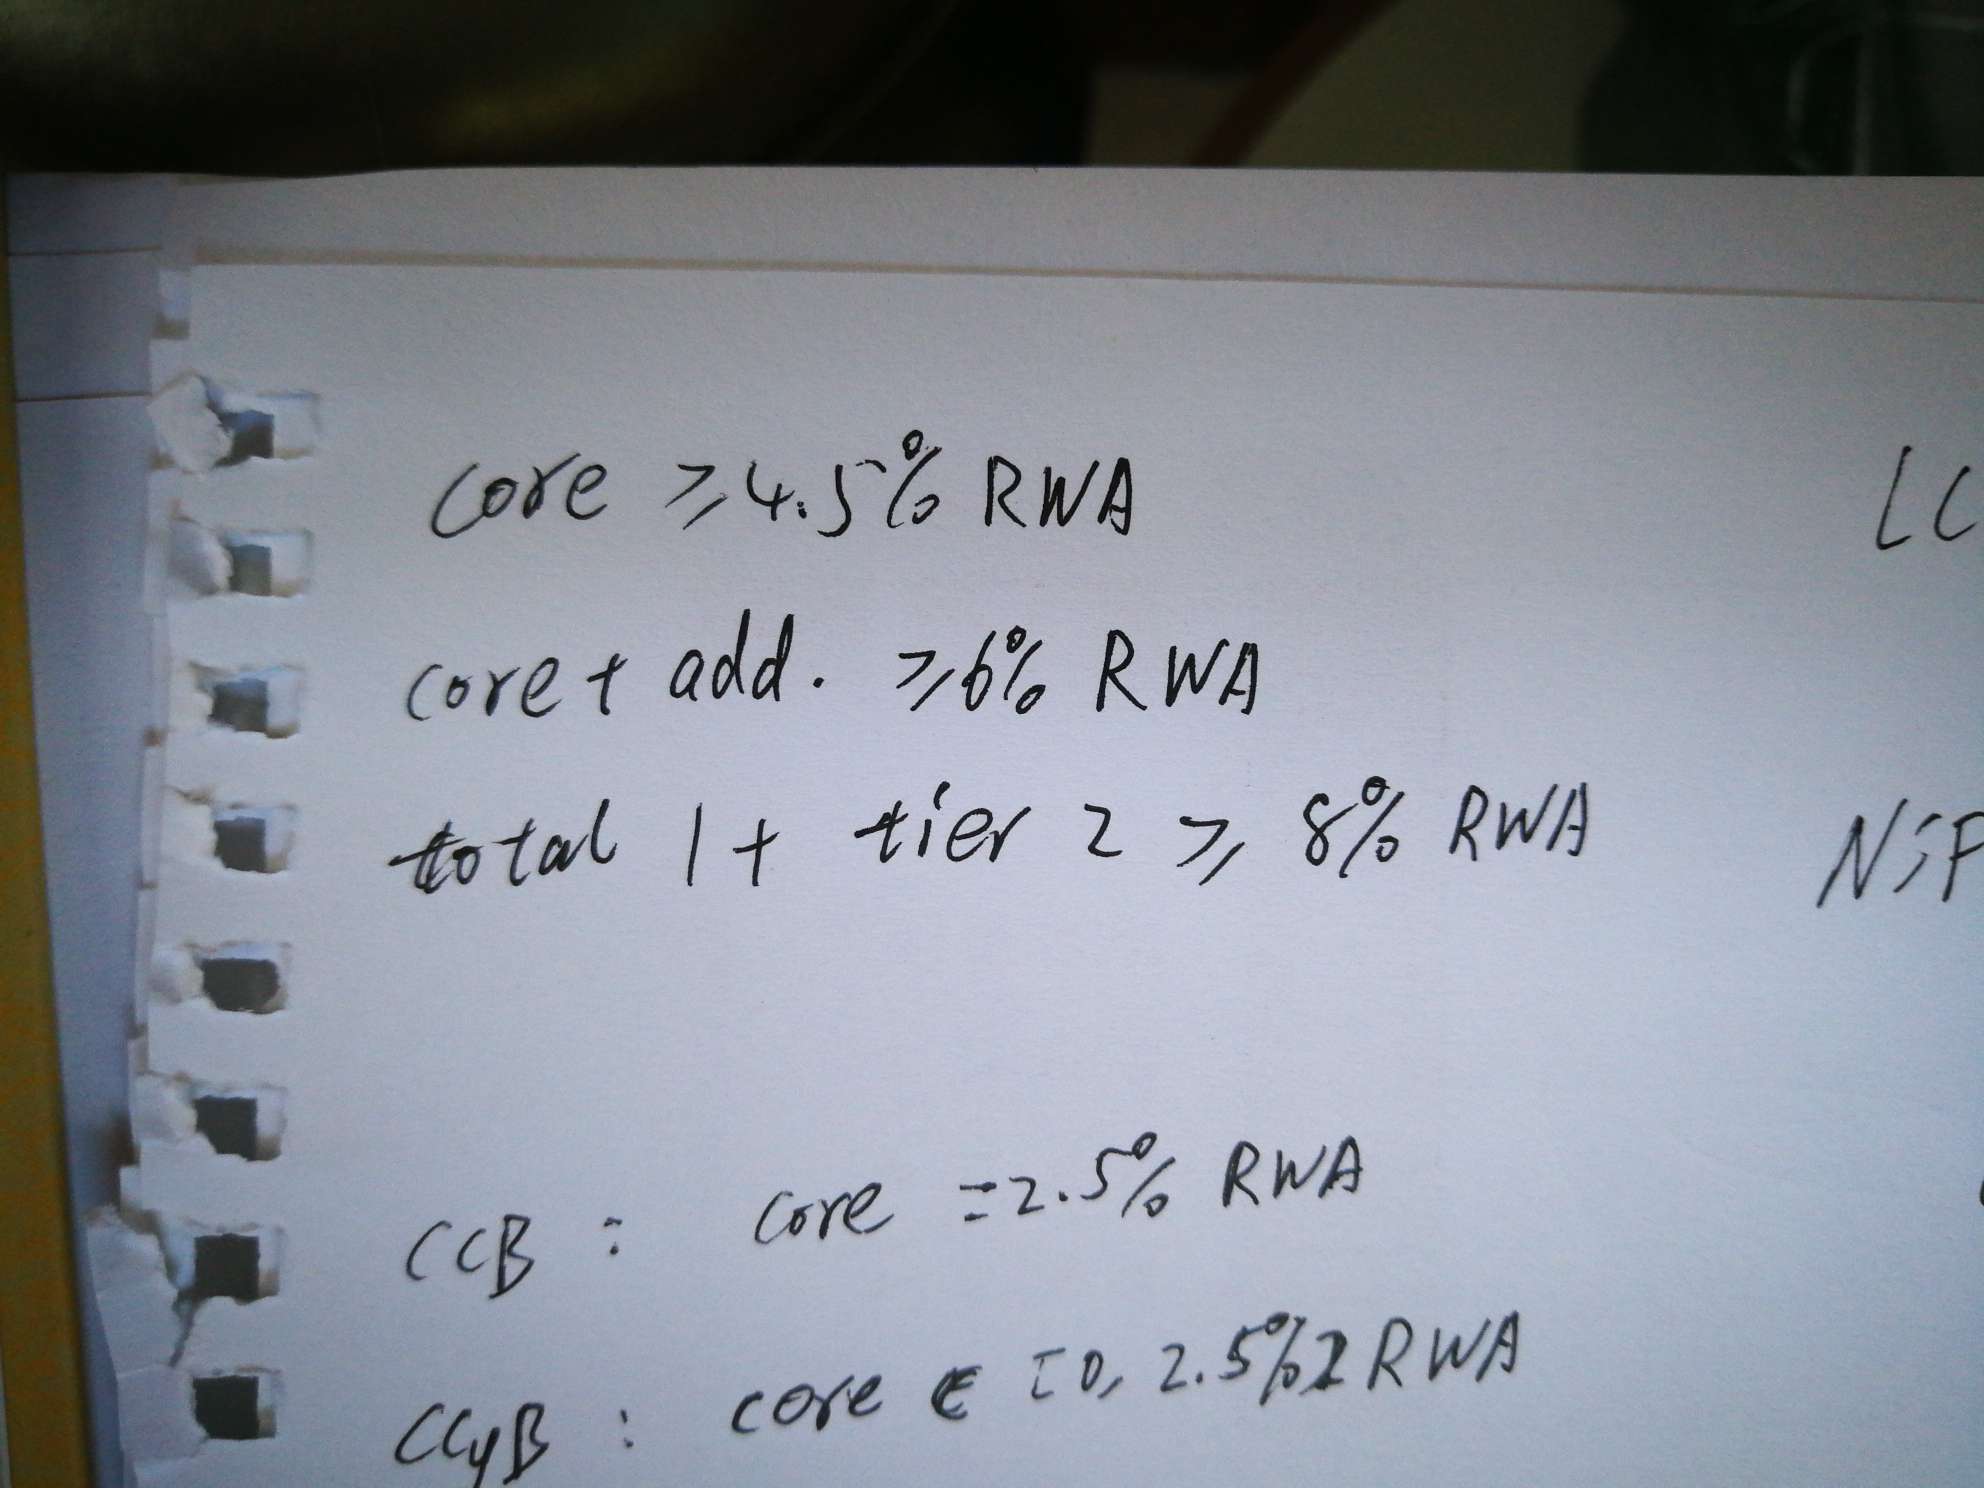 core ⩾ 4.5% RWA
LC
core + add. ⩾ 6% RWA
total 1 + tier 2 ⩾ 8% RWA
CCB : core = 2.5% RWA
CCyB : core ∈ [0, 2.5%] RWA